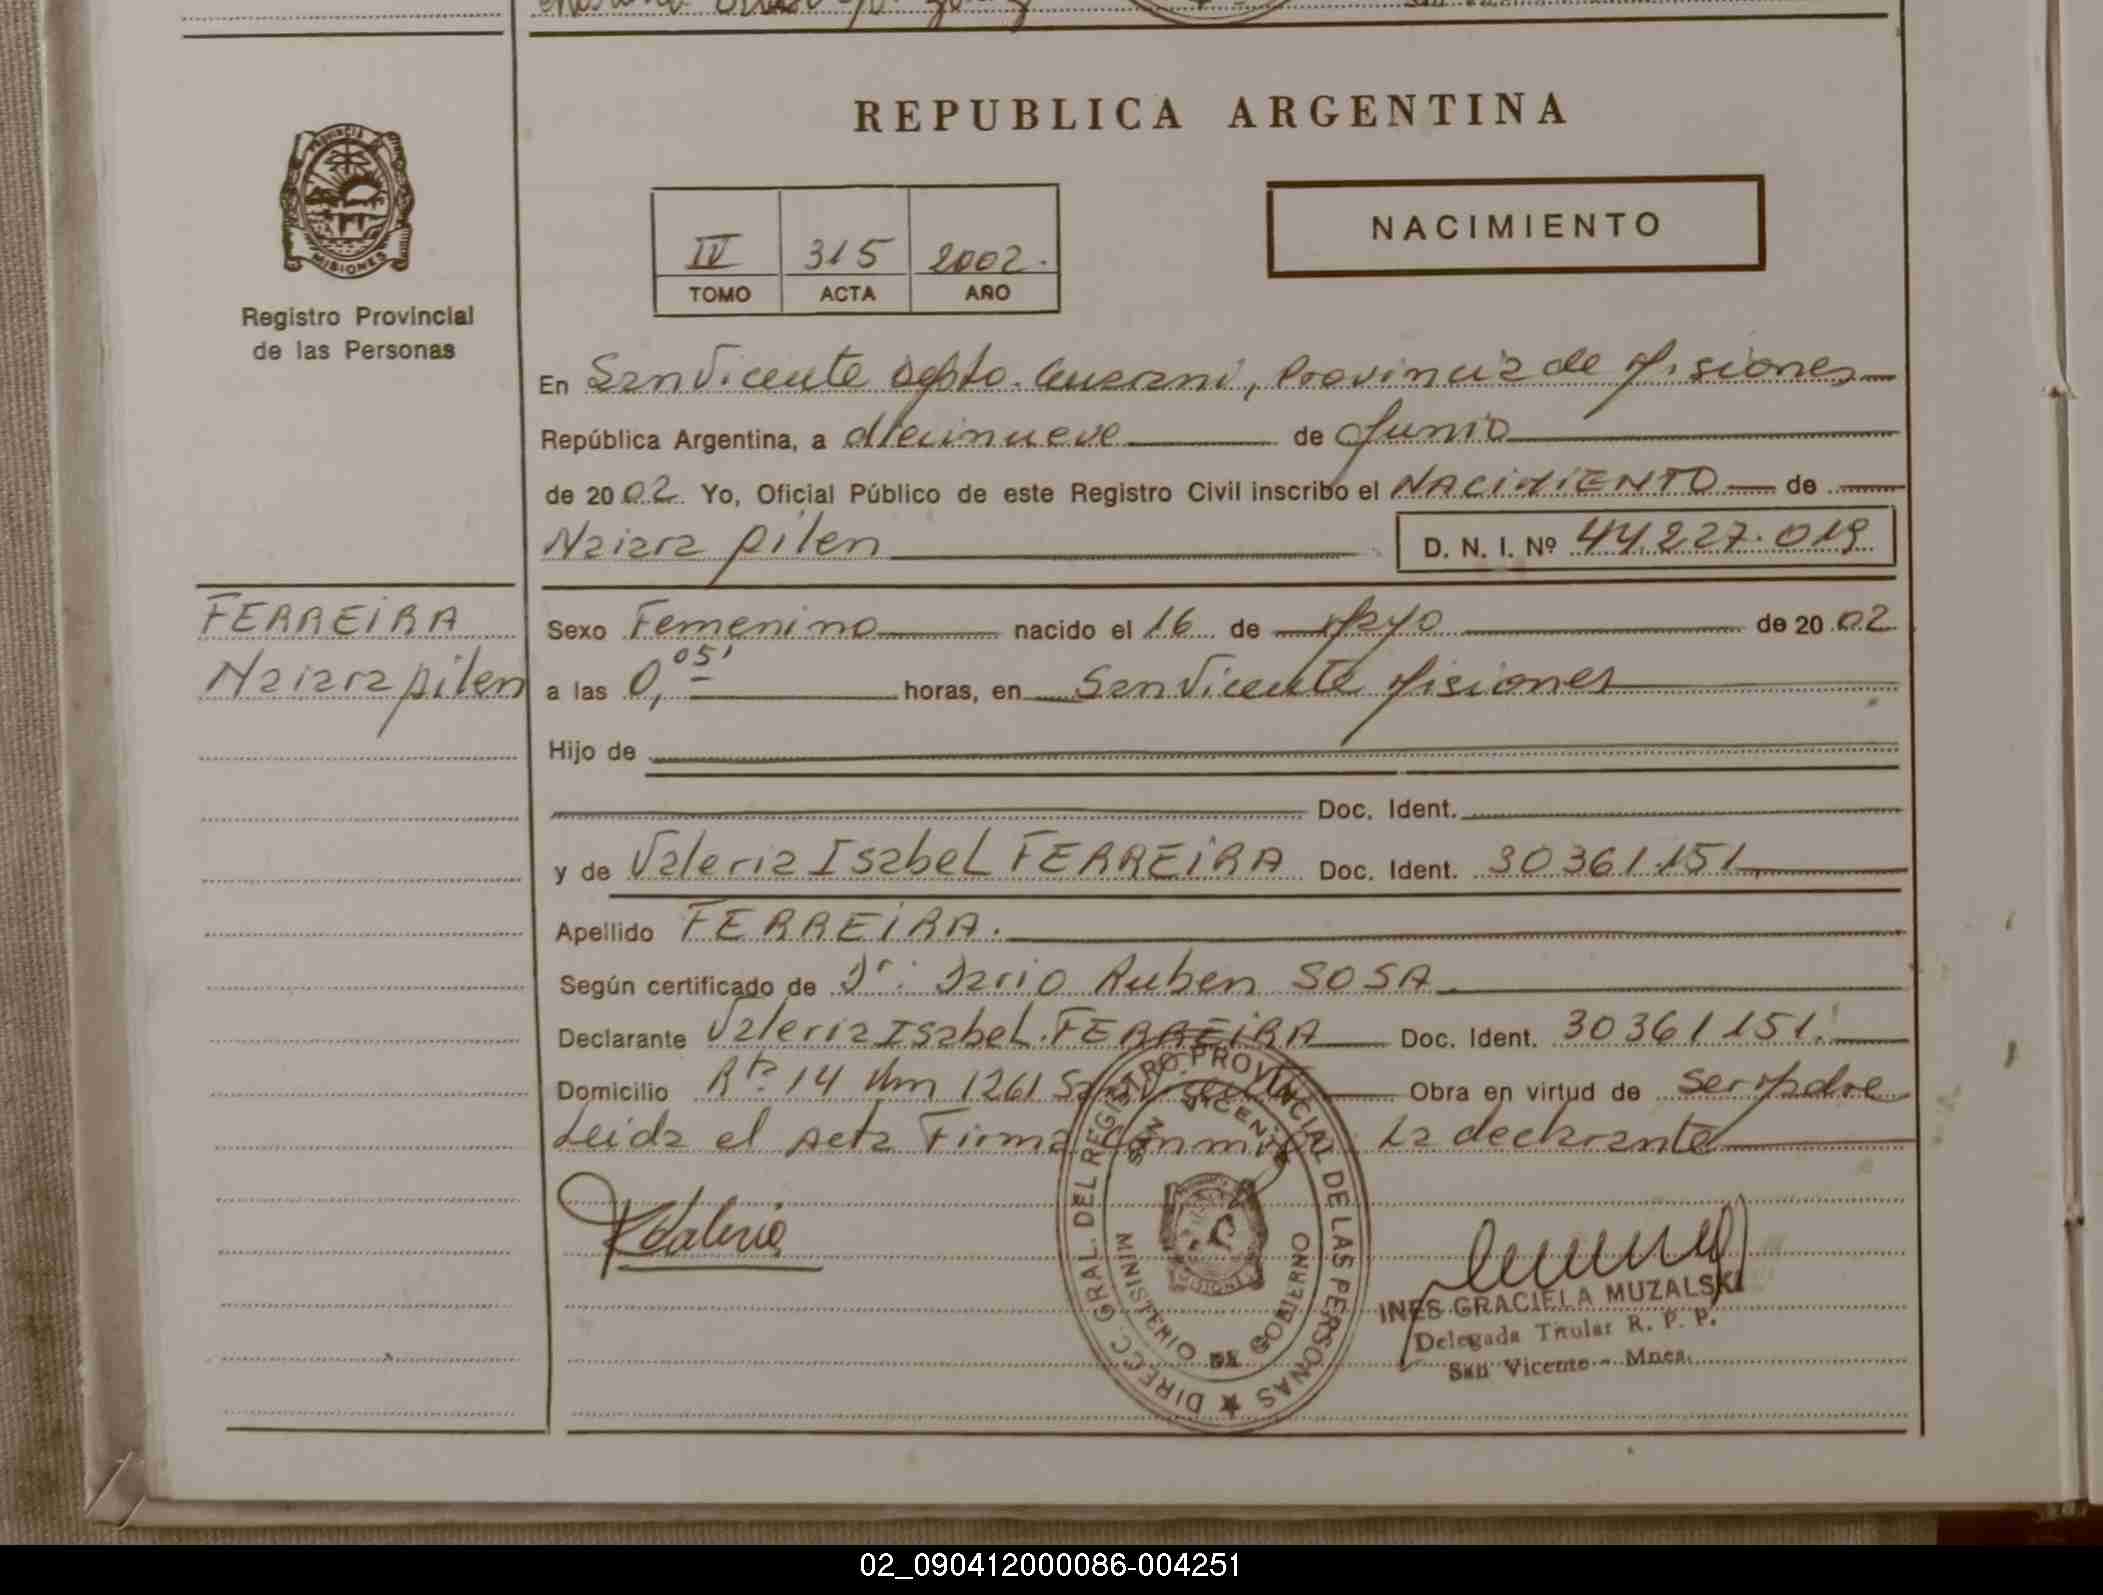 REPUBLICA ARGENTINA
PROVINCIA
MISIONES
Registro Provincial
de las Personas
IV 315 2002.
TOMO ACTA AÑO
NACIMIENTO
En San Vicente Depto. Guarani, Provincia de Misiones
República Argentina, a diecinueve de Junio
de 2002 Yo, Oficial Público de este Registro Civil inscribo el NACIMIENTO de
Naiara pilen
D. N. I. Nº 44.227.019
FERREIRA
Naiara pilen
Sexo Femenino nacido el 16 de Mayo de 2002
a las 0,05' horas, en San Vicente Misiones
Hijo de
Doc. Ident.
y de Valeria Isabel FERREIRA Doc. Ident. 30361.151
Apellido FERREIRA.
Según certificado de Dr. Dario Ruben SOSA
Declarante Valeria Isabel FERREIRA Doc. Ident. 30361151.
Domicilio Rta 14 Km 1261 San Vicente Obra en virtud de ser Madre
Leida el Acta Firma Conmigo La declarante
Valeria
DIRECC. GRAL. DEL REGISTRO PROVINCIAL DE LAS PERSONAS
SAN VICENTE
MINISTERIO DE GOBIERNO
INES GRACIELA MUZALSKI
Delegada Titular R. P. P.
San Vicente - Mnes.
02_090412000086-004251